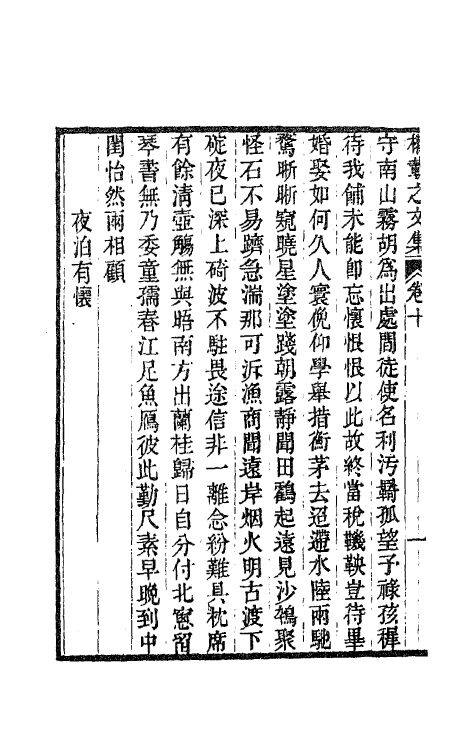 楊勤之文集 卷十 一
守南山霧胡爲出處間徒使名利汚驕孤望子祿孩穉
待我餔未能卽忘懷恨恨以此故終當稅鞿鞅豈待畢
婚娶如何久人寰俛仰學舉措衡茅去迢遰水陸兩馳
騖晰晰窺曉星塗塗踐朝露靜聞田鸛起遠見沙鴇聚
怪石不易躋急湍那可泝漁商聞遠岸烟火明古渡下
碇夜已深上碕波不駐畏途信非一離念紛難具枕席
有餘清壺觴無與晤南方出蘭桂歸日自分付北窻留
琴書無乃委童孺春江足魚鴈彼此勤尺素早晚到中
閨怡然兩相顧
夜泊有懷